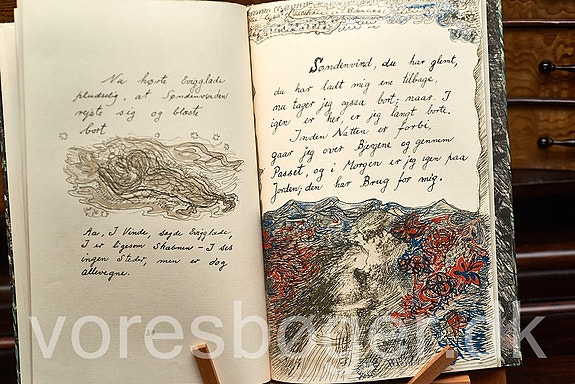 Nu hørte Evigglade
pludselig, at Søndenvinden
rejste sig og blæste
bort
Aa, I Vinde, sagde Evigglade,
I er ligesom Skæbnen - I ses
ingen Steder, men er dog
allevegne.
Søndenvind, du har glemt,
du har ladt mig ene tilbage,
nu tager jeg ogsaa bort; naar I
igen er her, er jeg langt borte.
Inden Natten er forbi,
gaar jeg over Bjergene og gennem
Passet, og i Morgen er jeg igen paa
Jorden; den har Brug for mig.
voresbøger.dk